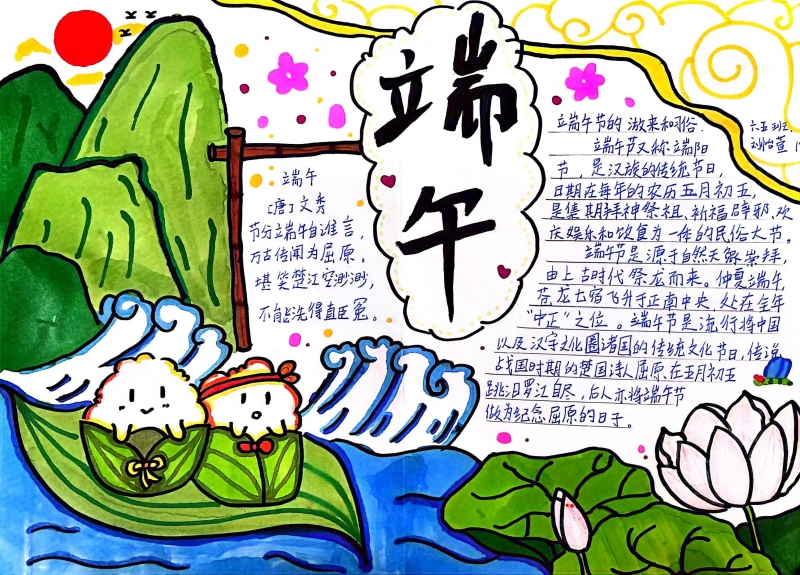 端午
端午
[唐]文秀
节分端午自谁言,
万古传闻为屈原。
堪笑楚江空渺渺,
不能洗得直臣冤。
端午节的 来和习俗.
端午节又称端阳
节,是汉族的传统节日,
日期在每年的农历五月初五,
是集期拜神祭祖、祈福辟邪、欢
庆娱乐和饮食为一体的民俗大节。
端午节是源于自然天象崇拜,
由上古时代祭龙而来。仲夏端午,
苍龙七宿飞升于正南中央,处在全年
“中正”之位。端午节是流行将中国
以及汉字文化圈诸国的传统文化节日,传说
战国时期的楚国诗人屈原在五月初五
跳汨罗江自尽,后人亦将端午节
做为纪念屈原的日子。
六五班,
刘怡萱